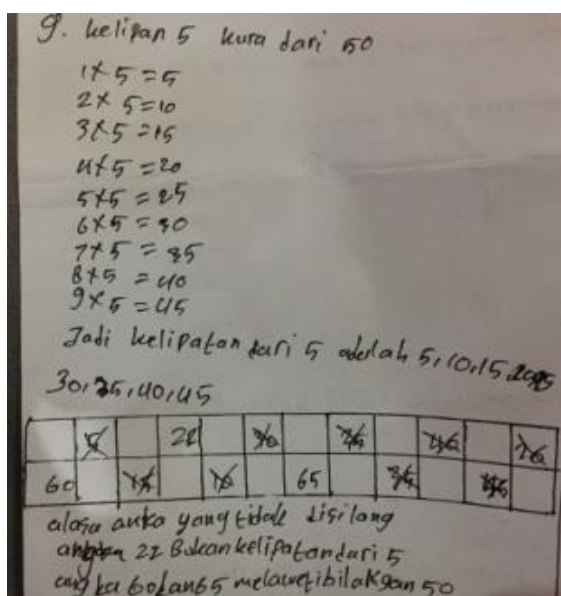 9. kelipan 5 kura dari 50
1x5=5
2x5=10
3x5=15
4x5=20
5x5=25
6x5=30
7x5=35
8x5=40
9x5=45
Jadi kelipatan dari 5 adalah 5,10,15,20,25
30,35,40,45
5 22 30 40
60 15 10 65
alasa anka yang tidak disilang
angka 22 Bukan kelipatan dari 5
angka 60 dan 65